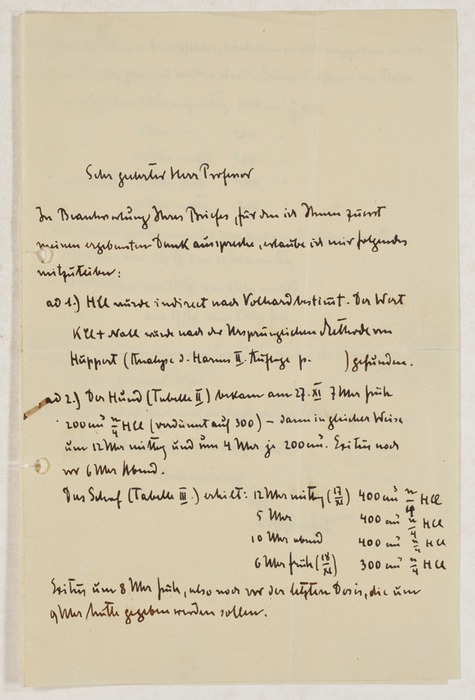 Sehr geehrter Herr Professor
In Beantwortung Ihres Briefes, für den ich Ihnen zuerst
meinen ergebensten Dank ausspreche, erlaube ich mir folgendes
mitzuteilen:
ad 1.) HCl wurde indirect nach Volhard bestimmt. Der Wert
KCl + NaCl wurde nach der ursprünglichen Methode von
Huppert (Analyse d. Harns II. Auflage p. ) gefunden.
ad 2.) Der Hund (Tabelle II) bekam am 27. XI 7 Uhr früh
200 cm³ n/4 HCl (verdünnt auf 300) – dann in gleicher Weise
um 12 Uhr mittg und um 4 Uhr je 200 cm³. Exitus noch
vor 6 Uhr Abend.
Das Schaf (Tabelle III.) erhielt: 12 Uhr mittg (17/XI) 400 cm³ n/4 HCl
5 Uhr 400 cm³ n/4 HCl
10 Uhr abend 400 cm³ n/4 HCl
6 Uhr früh (18/XI) 300 cm³ n/4 HCl
Exitus um 8 Uhr früh, also noch vor der letzten Dosis, die um
9 Uhr hätte gegeben werden sollen.